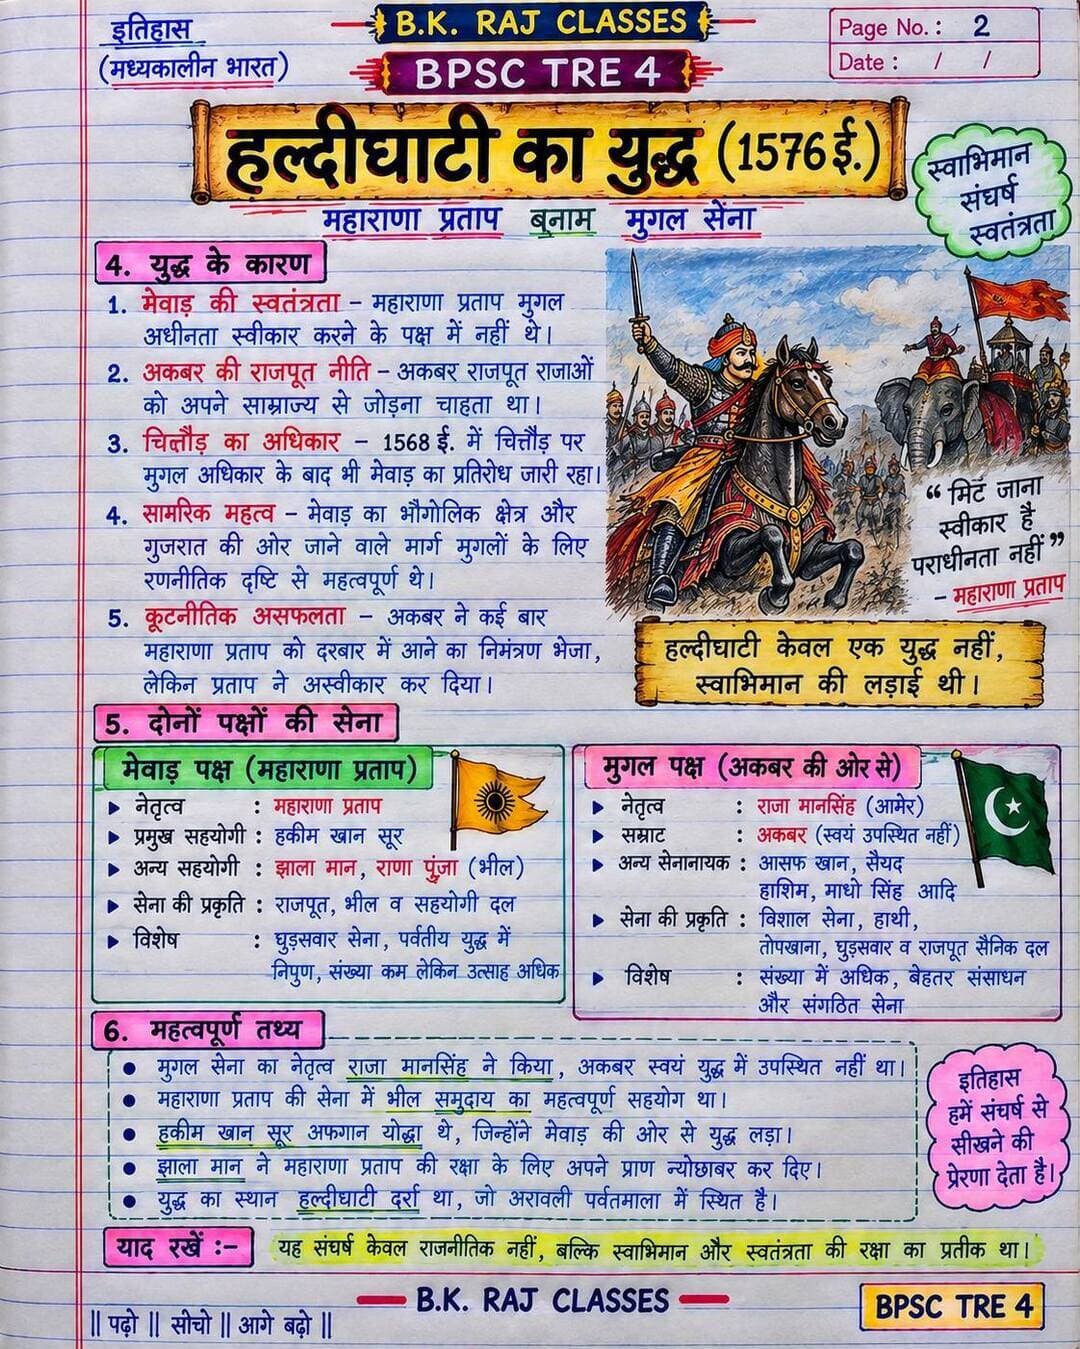 इतिहास
(मध्यकालीन भारत)
B.K. RAJ CLASSES
BPSC TRE 4
Page No. : 2
Date : / /
हल्दीघाटी का युद्ध (1576 ई.)
महाराणा प्रताप बनाम मुगल सेना
स्वाभिमान
संघर्ष
स्वतंत्रता
4. युद्ध के कारण
1. मेवाड़ की स्वतंत्रता – महाराणा प्रताप मुगल
अधीनता स्वीकार करने के पक्ष में नहीं थे।
2. अकबर की राजपूत नीति – अकबर राजपूत राजाओं
को अपने साम्राज्य से जोड़ना चाहता था।
3. चित्तौड़ का अधिकार – 1568 ई. में चित्तौड़ पर
मुगल अधिकार के बाद भी मेवाड़ का प्रतिरोध जारी रहा।
4. सामरिक महत्व – मेवाड़ का भौगोलिक क्षेत्र और
गुजरात की ओर जाने वाले मार्ग मुगलों के लिए
रणनीतिक दृष्टि से महत्वपूर्ण थे।
5. कूटनीतिक असफलता – अकबर ने कई बार
महाराणा प्रताप को दरबार में आने का निमंत्रण भेजा,
लेकिन प्रताप ने अस्वीकार कर दिया।
“ मिट जाना
स्वीकार है
पराधीनता नहीं ”
– महाराणा प्रताप
हल्दीघाटी केवल एक युद्ध नहीं,
स्वाभिमान की लड़ाई थी।
5. दोनों पक्षों की सेना
मेवाड़ पक्ष (महाराणा प्रताप)
नेतृत्व : महाराणा प्रताप
प्रमुख सहयोगी : हकीम खान सूर
अन्य सहयोगी : झाला मान, राणा पूंजा (भील)
सेना की प्रकृति : राजपूत, भील व सहयोगी दल
विशेष : घुड़सवार सेना, पर्वतीय युद्ध में
निपुण, संख्या कम लेकिन उत्साह अधिक
मुगल पक्ष (अकबर की ओर से)
नेतृत्व : राजा मानसिंह (आमेर)
सम्राट : अकबर (स्वयं उपस्थित नहीं)
अन्य सेनानायक : आसफ खान, सैयद
हाशिम, माधो सिंह आदि
सेना की प्रकृति : विशाल सेना, हाथी,
तोपखाना, घुड़सवार व राजपूत सैनिक दल
विशेष : संख्या में अधिक, बेहतर संसाधन
और संगठित सेना
6. महत्वपूर्ण तथ्य
• मुगल सेना का नेतृत्व राजा मानसिंह ने किया, अकबर स्वयं युद्ध में उपस्थित नहीं था।
• महाराणा प्रताप की सेना में भील समुदाय का महत्वपूर्ण सहयोग था।
• हकीम खान सूर अफगान योद्धा थे, जिन्होंने मेवाड़ की ओर से युद्ध लड़ा।
• झाला मान ने महाराणा प्रताप की रक्षा के लिए अपने प्राण न्योछाबर कर दिए।
• युद्ध का स्थान हल्दीघाटी दर्रा था, जो अरावली पर्वतमाला में स्थित है।
इतिहास
हमें संघर्ष से
सीखने की
प्रेरणा देता है।
याद रखें :– यह संघर्ष केवल राजनीतिक नहीं, बल्कि स्वाभिमान और स्वतंत्रता की रक्षा का प्रतीक था।
|| पढ़ो || सीचो || आगे बढ़ो ||
B.K. RAJ CLASSES
BPSC TRE 4